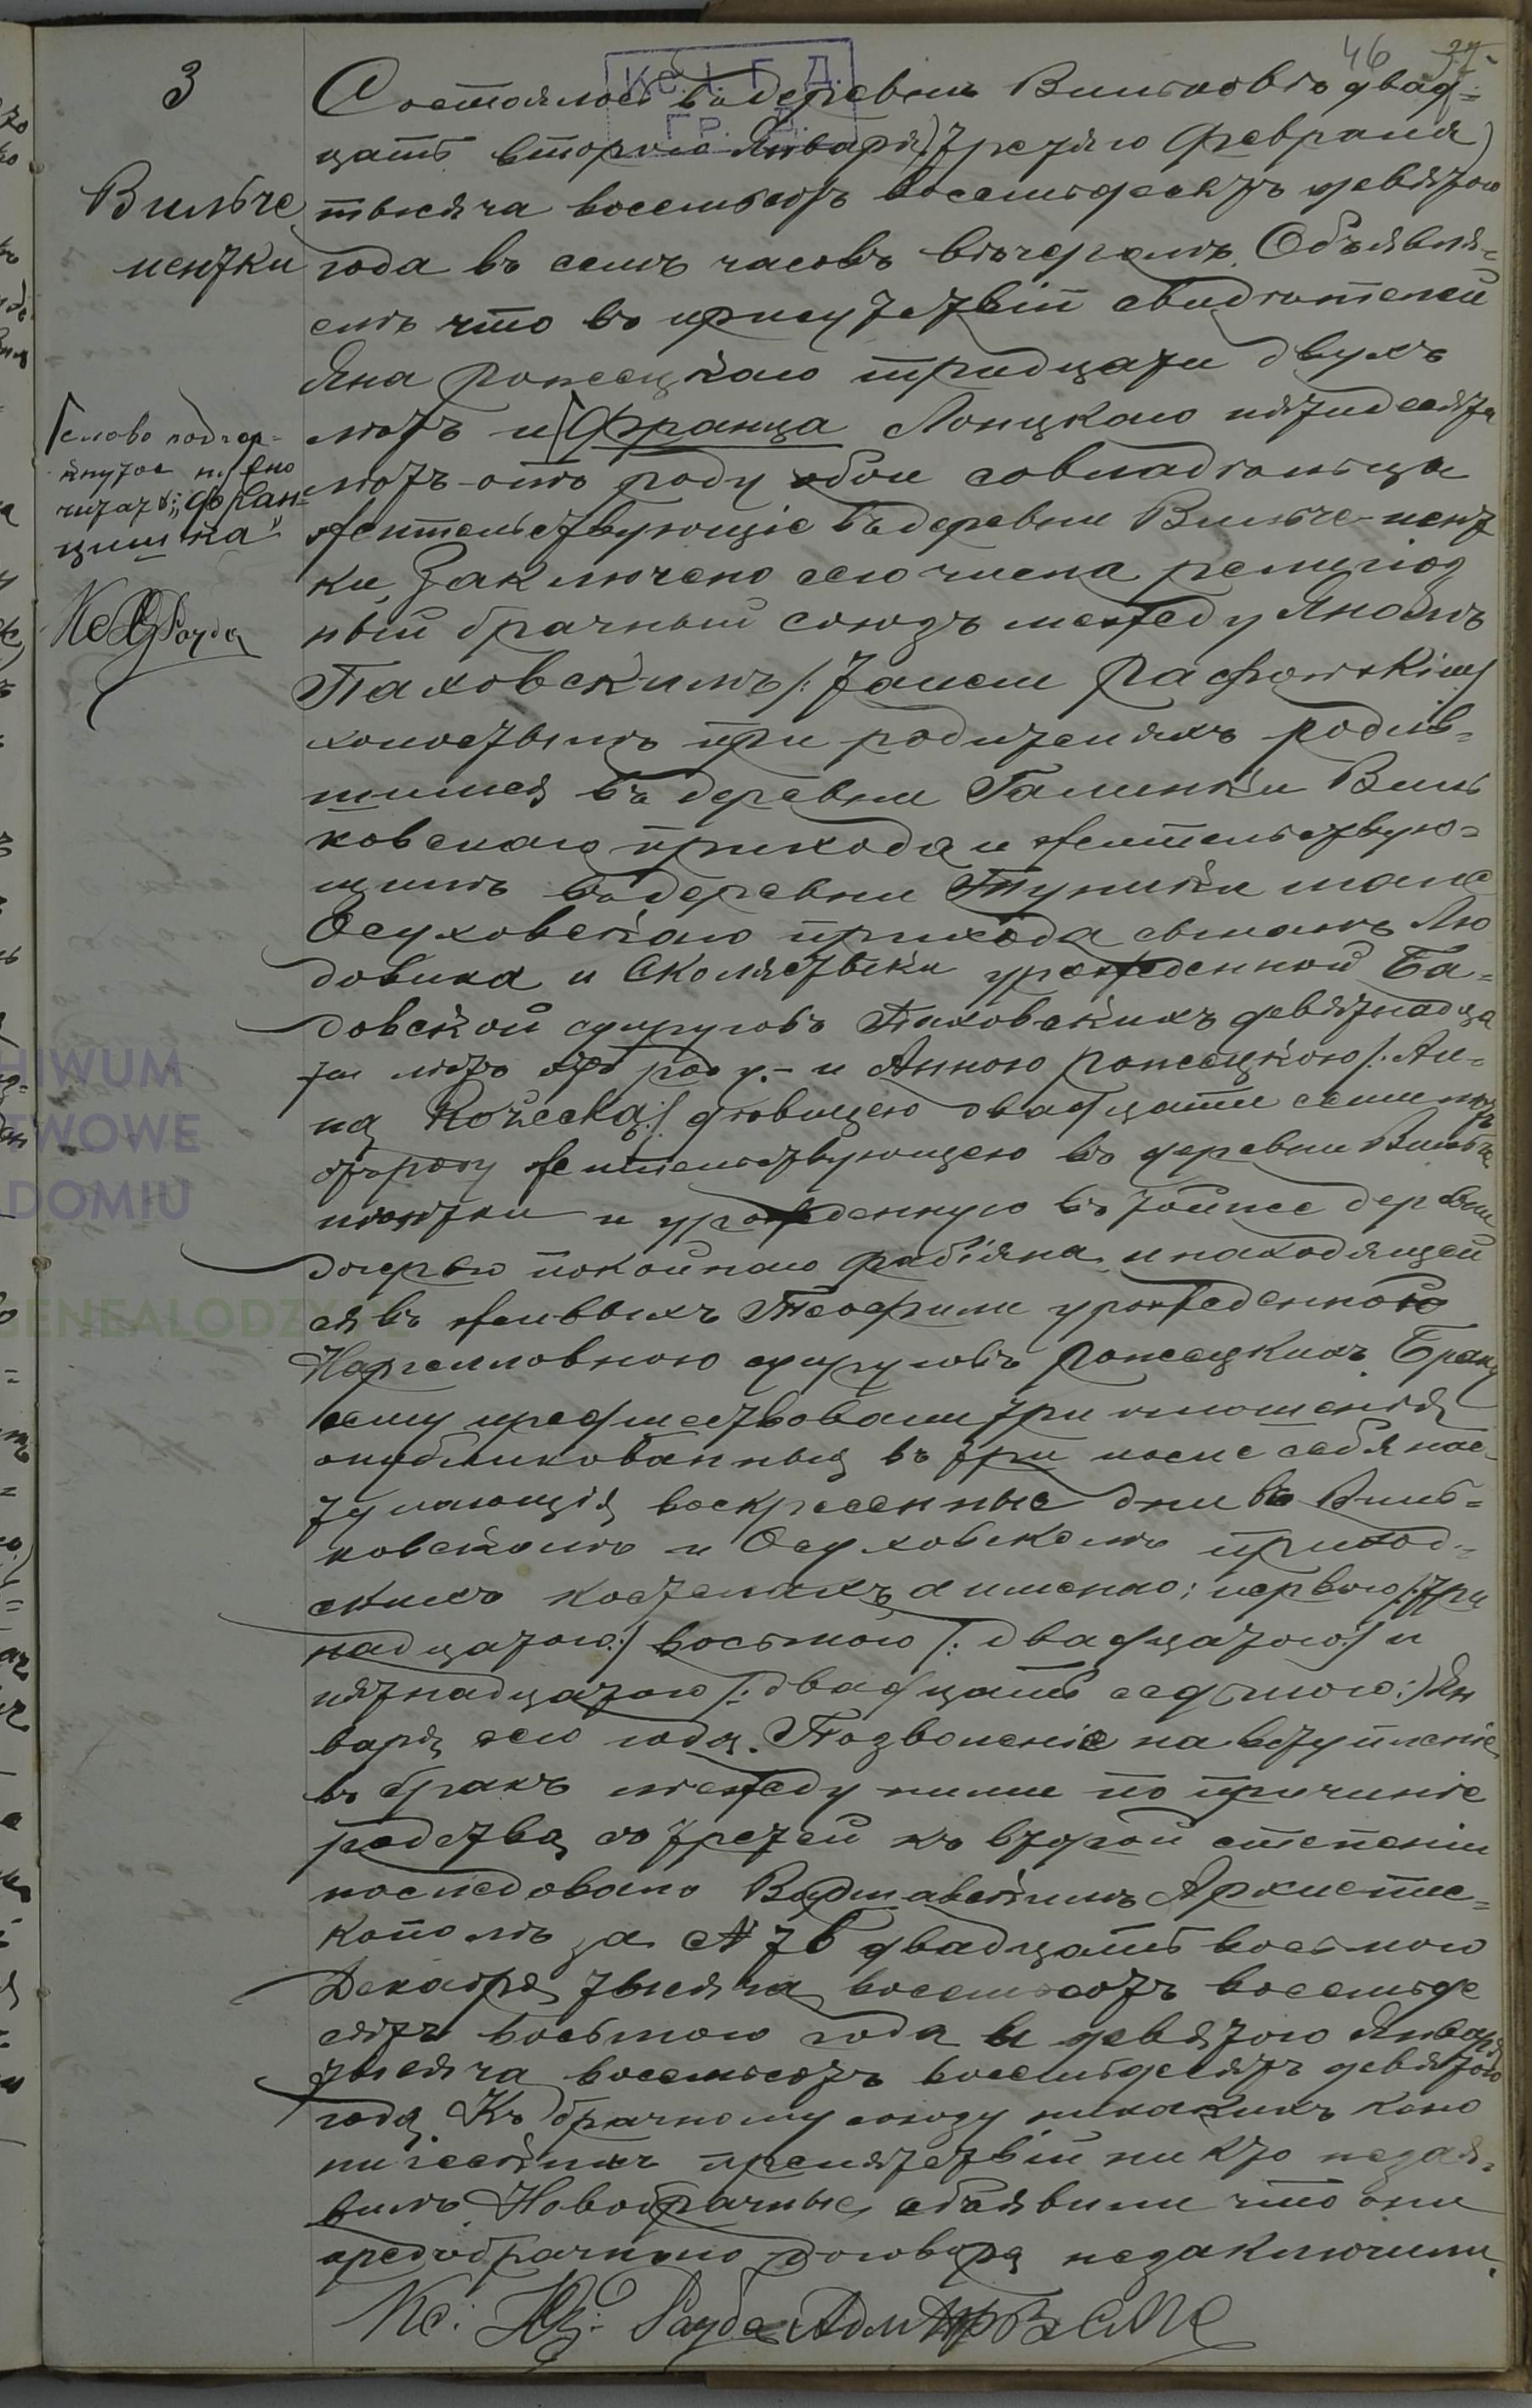 46 27.
3
Вильче
ненткu
Кс. І. Г. Д.
Гр. Д.
Состоялось въ деревни Вильковѣ двад=
цать второго Января) третяго Февраля)
тысяча восемьсотъ восемьдесятъ девятого
года въ семъ часовъ вѣчеромъ. Объявля-
емъ что въ присутствіи свидѣтелей
Яна Рокецкаго тридцати двухъ
лѣтъ и Франца Лонцкаго пятидесяти
лѣтъ отъ роду обои совладѣльцы
жительствующіе въ деревни Вильче-нент
ки, Заключено сего числа религіоз
ный брачный союзъ между Яномъ
Паховскимъ /: Janem Pachowskim/
холостымъ при родителяхъ родив=
шимся въ деревни Галинки Виль
ковскаго прихода и жительствую=
щимъ въ деревни Тупинки тоже
Осуховскаго прихода сыномъ Лю
довика и Схолястыки урожденной Ба=
довской супруговъ Паховскихъ девятнадца
ти лѣтъ отъ роду.- и Анною Рокецкою /: An-
ną Rokecką :/ дѣвицею двадцати семи лѣтъ
отъ роду жительствующею въ деревни Вильче
нентки и урожденную въ тойже деревни
дочерью покойнаго Фабіяна и находящей
ся въ живыхъ Теофили урожденною
супруговъ Рокецкихъ. Браку
сему предшествовали три оглошенія
опубликованныя въ три после себя нас
тупающія воскресенные дни въ Виль=
ковскомъ и Осуховскомъ приход-
скихъ костелахъ, а именно: первого /: три
надцатого :/ восьмого /: двадцатого :/ и
пятнадцатого /: двадцать седьмого :/ Ян
варя сего года. Позволеніе на вступленіе
въ бракъ между ними по причинѣ
родства въ третей къ второй степеніи
последовало Варшавскимъ Архиепис=
копомъ за № 76 двадцать восьмого
Декабря тысяча восемьсотъ восемьде
сятъ восьмого года и девятого Января
тысяча восемьсотъ восемьдесятъ девятого
года. Къ брачному союзу никакихъ кано
ническихъ препятствій никто незая=
вилъ. Новобрачные объявили что они
предбрачного договора незаключили.
слово подчер-
кнутое нужно
читать: „Фран=
цишка"